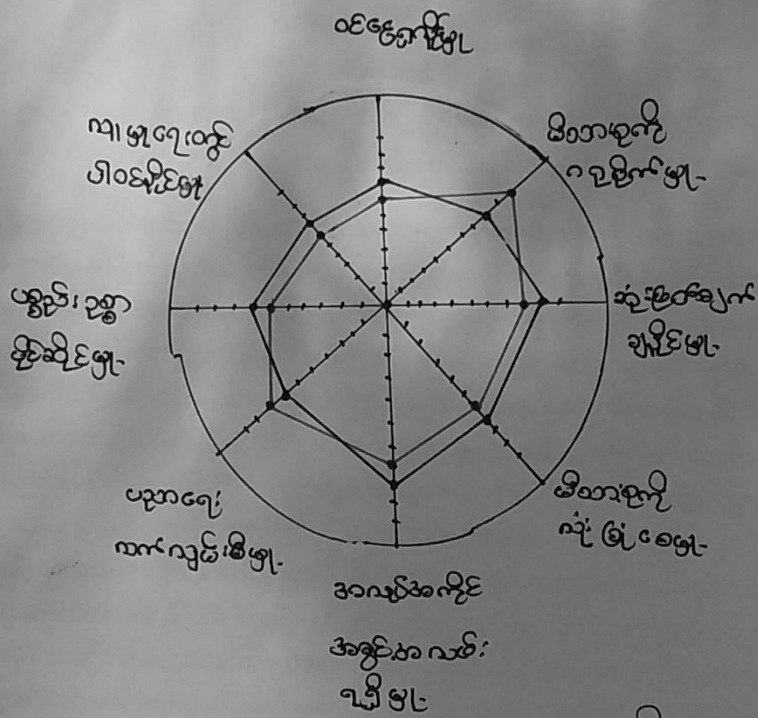 ဝင်ငွေရနိုင်မှု
မိသားစုကို
ဂရုစိုက်မှု
ဆုံးဖြတ်ချက်
ချနိုင်မှု
မိသားစုကို
လုံခြုံစေမှု
အလုပ်အကိုင်
အခွင့်အလမ်း
ရရှိမှု
ပညာရေး
လက်လှမ်းမီမှု
ပစ္စည်းဥစ္စာ
ပိုင်ဆိုင်မှု
ပါဝင်နိုင်မှု